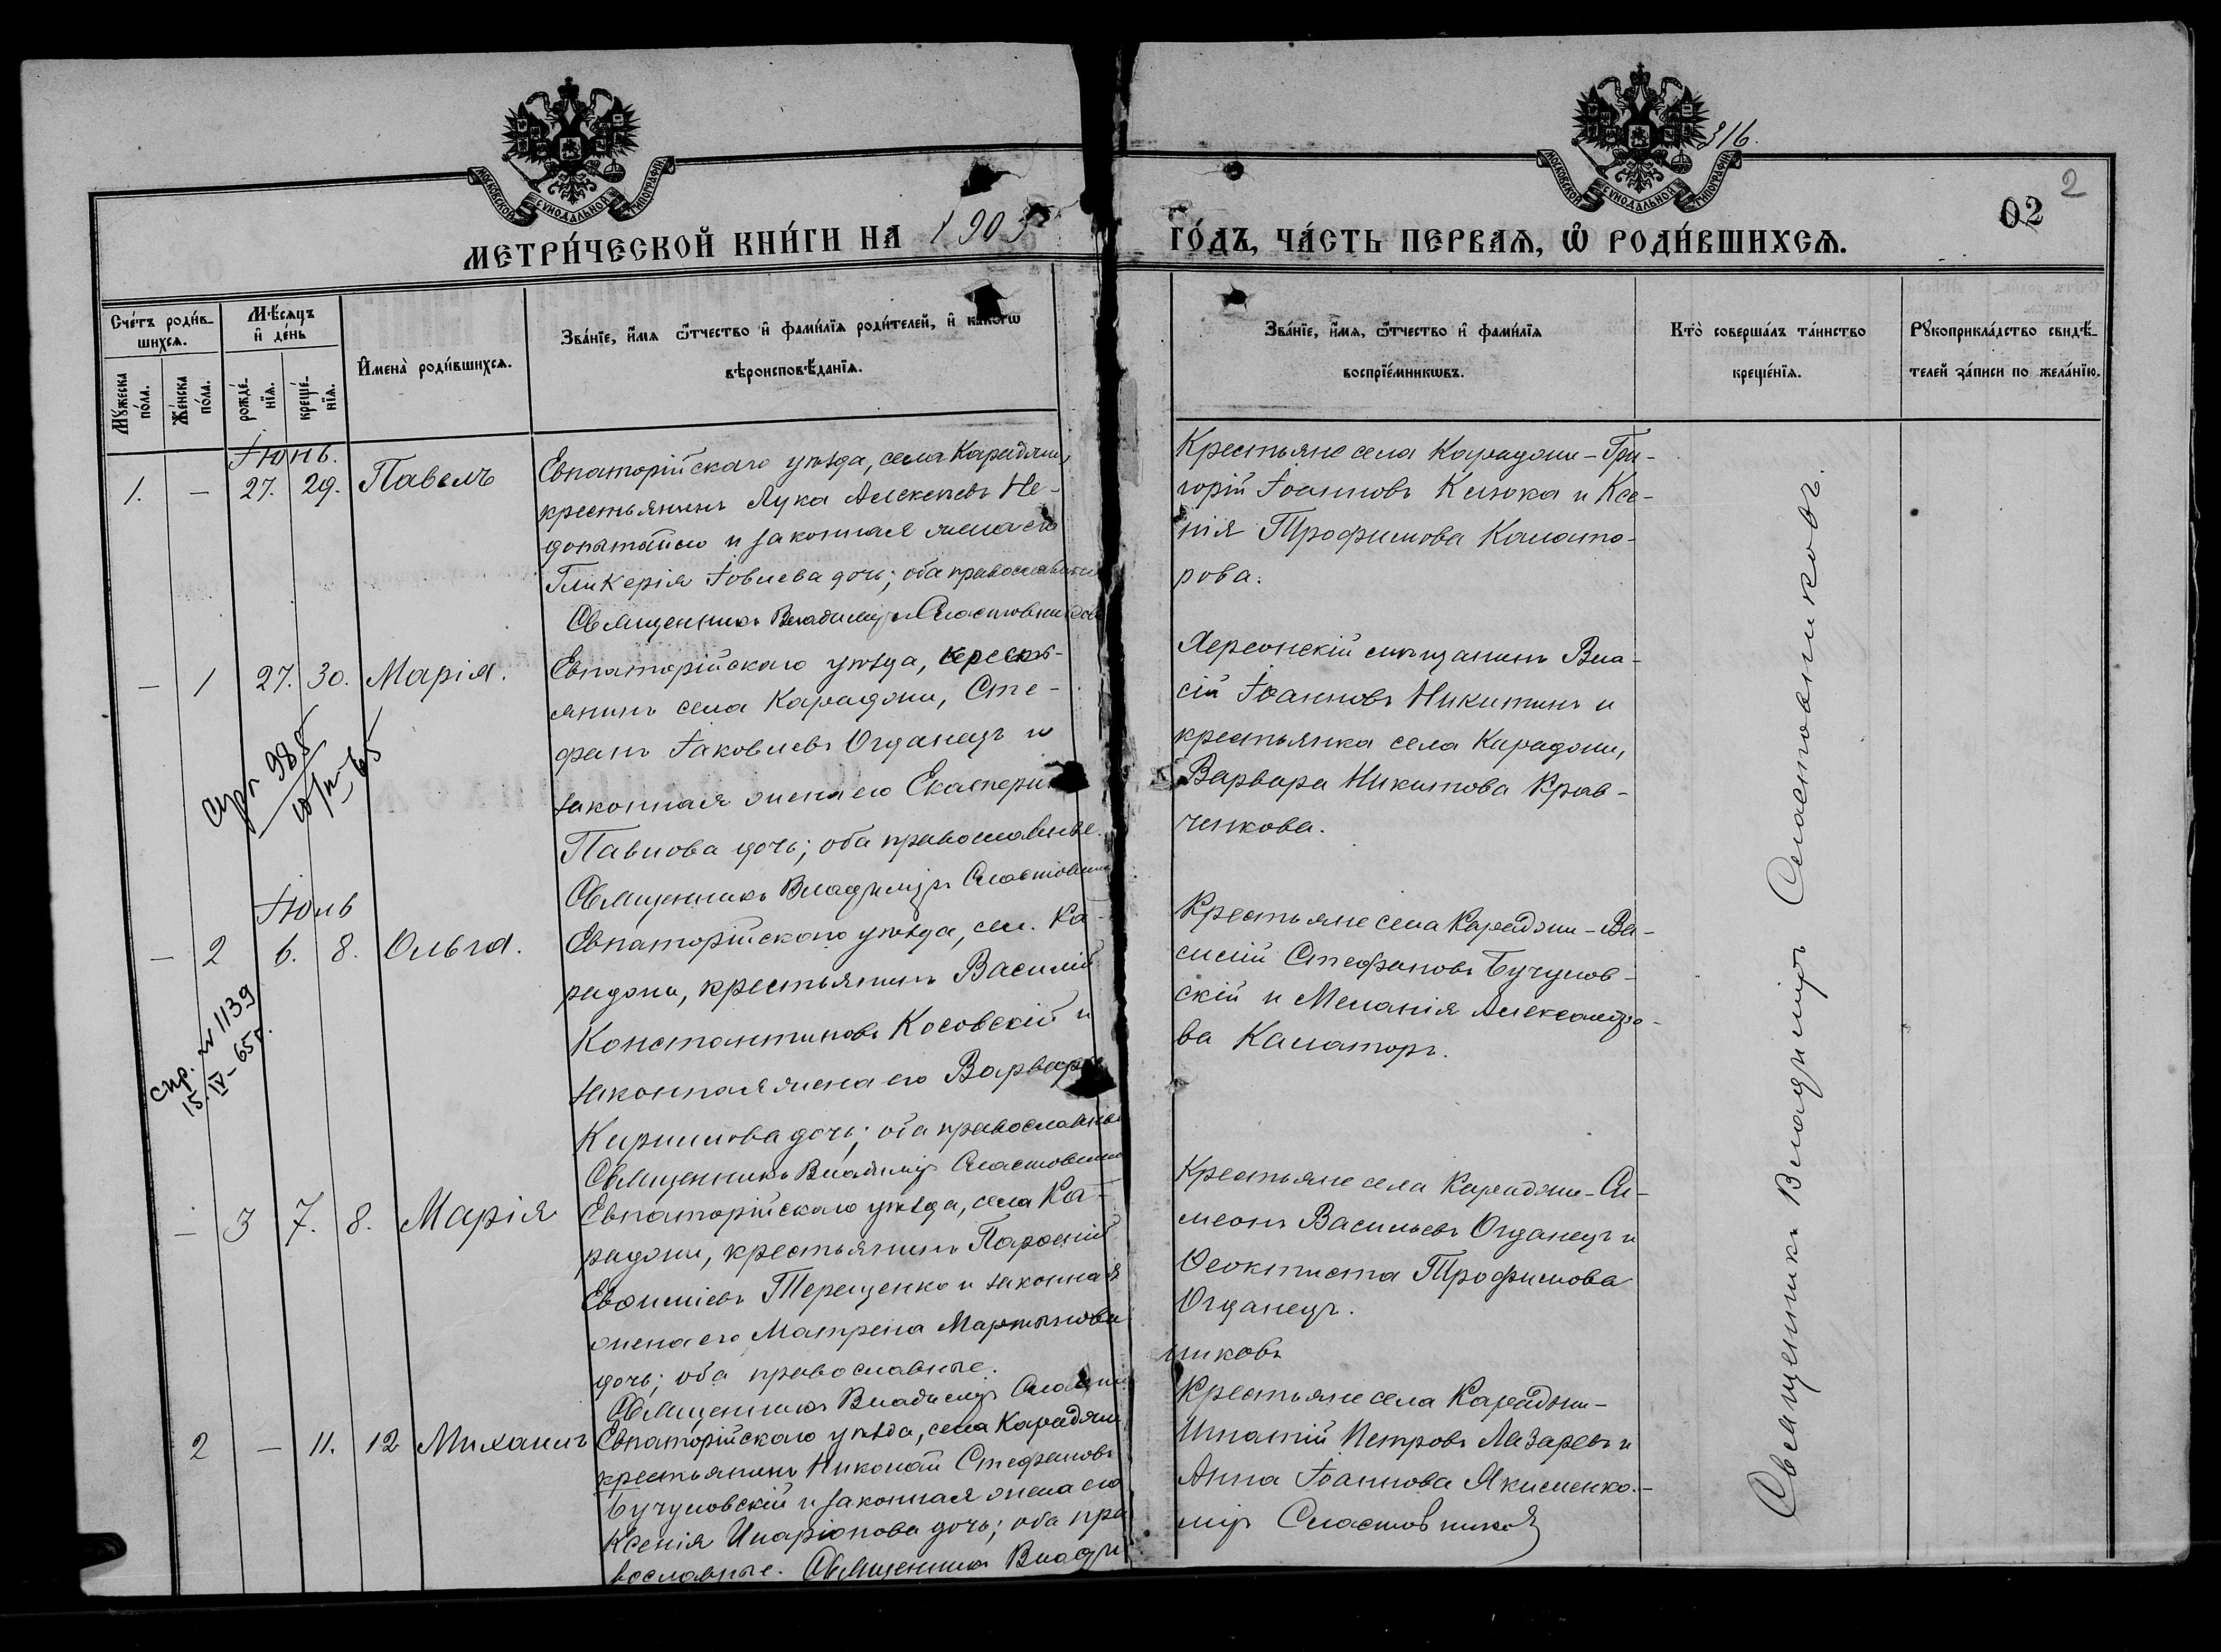 316.
МОСКОВСКОЙ СѴНОДАЛЬНОЙ ТИПОГРАФІИ
МОСКОВСКОЙ СѴНОДАЛЬНОЙ ТИПОГРАФІИ
02 2
МЕТРИ́ЧЕСКОЙ КНИ́ГИ НА 1905
ГО́ДЪ, ЧА́СТЬ ПЕРВАѦ, Ѡ҆ РОДИ́ВШИХСѦ.
Сче́тъ роди́в-
шихсѧ.
Мꙋ́жеска
по́ла.
Же́нска
по́ла.
Мѣ́сѧцъ
и҆ де́нь
рожде́-
нїѧ.
креще́-
нїѧ.
И҆мена̀ роди́вшихсѧ.
Зва́нїе, и҆́мѧ ѻ҆́тчество и҆ фами́лїѧ роди́телей, и҆ какогѡ
вѣроисповѣ́данїѧ.
Зва́нїе, и҆́мѧ, ѻ҆́тчество и҆ фами́лїѧ
воспрїе́мникѡвъ.
Кто̀ соверша́лъ та́инство
креще́нїѧ.
Рꙋкоприкла́дство свидѣ́-
телей за́писи по жела́нїю.
Іюнь.
1. — 27. 29. Павелъ
Евпаторійскаго уѣзда, села Караджи,
крестьянинъ Лука Алексѣевъ Не-
допытайло и законная жена его
Гликерія Іовлева дочь; оба православные
Священникъ Владиміръ Сластовников
Крестьяне села Караджи – Гри-
горій Іоанновъ Клюка и Ксе-
нія Трофимова Калато-
рова.
— 1 27. 30. Марія.
Евпаторійскаго уѣзда, кресть-
янинъ села Караджи, Сте-
фанъ Іаковлевъ Огданецъ и
законная жена его Екатерин
Павлова дочь; оба православные.
Священникъ Владиміръ Сластовник
Херсонскій мѣщанинъ Вла-
сій Іоанновъ Никитинъ и
крестьянка села Караджи,
Варвара Никитова Крав-
ченкова.
985
Іюль
— 2 6. 8. Ольга.
Евпаторійскаго уѣзда, сел. Ка-
раджи, крестьянинъ Василій
Константиновъ Косовскій и
законная жена его Варвара
Кириллова дочь; оба православные
Священникъ Владиміръ Сластовник
Крестьяне села Караджи – Ва-
силій Стефановъ Бучумов-
скій и Меланія Александро-
ва Калаторъ.
спр. № 1139
15.IV-65г.
— 3 7. 8. Марія
Евпаторійскаго уѣзда, села Ка-
раджи, крестьянинъ Парѳеній
Евѳиміевъ Терещенко и законная
жена его Матрена Мартынова
дочь; оба православные.
Священникъ Владиміръ Сластов
никовъ
Крестьяне села Караджи – Си-
меонъ Васильевъ Огданецъ и
Ѳеоктиста Трофимова
Огданецъ.
2 — 11. 12 Михаилъ
Евпаторійскаго уѣзда, села Караджи
крестьянинъ Николай Стефановъ
Бучумовскій и законная жена его
Ксенія Иларіонова дочь; оба пра
вославные. Священникъ Влади
міръ Сластовников
Крестьяне села Караджи –
Игнатій Петровъ Лазаревъ и
Анна Іоаннова Якименко. –
Священникъ Владиміръ Сластовниковъ.